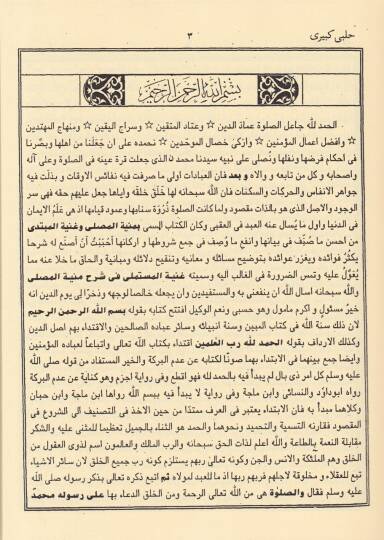 حلبى كبيرى
٣
بسم الله الرحمن الرحيم
الحمد لله جاعل الصلوة عماد الدين ☆ وعتاد المتقين ☆ وسراج اليقين ☆ ومنهاج المهتدين
☆ وافضل اعمال المؤمنين ☆ وازكى خصال الموحدين ☆ نحمده على ان جعلنا من اهلها وبصّرنا
فى احكام فرضها ونفلها ونُصلى على نبيه سيدنا محمد الذى جعلت قرة عينه فى الصلوة وعلى آله
واصحابه وكل من تابعه و والاه و بعد فان العبادات اولى ما صرفت فيه نفائس الاوقات و بذلت فيه
جواهر الانفاس والحركات والسكنات فان الله سبحانه لها خلق خلقه واياها جعل عليهم حقه فهى سر
الوجود والاصل الذى هو بالذات مقصود ولما كانت الصلوة ذروة سنامها وعمود قيامها اذ هى علم الايمان
فى الدنيا واول ما يسأل عنه العبد فى العقبى وكان الكتاب المسمى بمنية المصلى وغنية المبتدى
من احسن ما صُنّف فى بيانها وانفع ما وُصف فى جمع شروطها و اركانها احببت ان اصنع له شرحا
يكثر فوائده ويغزر عوائده بتوضيح مسائله و معانيه وتنقيح دلائله ومبانية والحاق ما خلا عنه مما
يُعوّل عليه وتمس الضرورة فى الغالب اليه وسميته غنية المستملى فى شرح منية المصلى
والله سبحانه اسأل الله ان ينفعنى به والمستفيدين وان يجعله خالصا لوجهه وذخرًا لى يوم الدين انه
خير مسئول و اكرم مامول وهو حسبى ونعم الوكيل افتتح كتابه بقوله بسم الله الرحمن الرحيم
لان ذلك سنة الله فى كتابه المبين وسنة انبيائه وسائر عباده الصالحين والاقتداء بهم اصل الدين
وكذلك الارداف بقوله الحمد لله رب العلمين اقتداء بكتاب الله تعالى واتباعا لعباده المؤمنين
وايضا جمع بينهما فى الابتداء بهما صونًا لكتابه عن عدم البركة والخير المستفاد من قوله صلى الله
عليه وسلم كل امر ذى بال لم يبدأ فيه بالحمد لله فهو اقطع وفى رواية اجزم وهو كناية عن عدم البركة
رواه ابوداؤد والنسائى وابن ماجة وفى رواية لا يبدأ فيه ببسم الله رواها ابن ماجة وابن حبان
وكلاهما مبدأ به فان الابتداء يعتبر فى العرف ممتدًا من حين الاخذ فى التصنيف الى الشروع فى
المقصود فقارنه التسمية والتحميد ونحوهما والحمد هو الثناء بالجميل تعظيما للمثنى عليه والشكر
مقابلة النعمة بالطاعة والله اعلم لذات الحق سبحانه والرب المالك والعالمون اسم لذوى العقول من
الخلق وهم الملئكة والانس والجن وكونه تعالى ربهم يستلزم كونه رب جميع الخلق لان سائر الاشياء
تبع للعقلاء و مخلوقة لاجلهم فربهم ربها اذ ما للعبد لمولاه ثم اتبع ذكره تعالى بذكر رسوله صلى الله
عليه وسلم فقال والصلوة هى من الله تعالى الرحمة ومن الخلق الدعاء بها على رسوله محمد